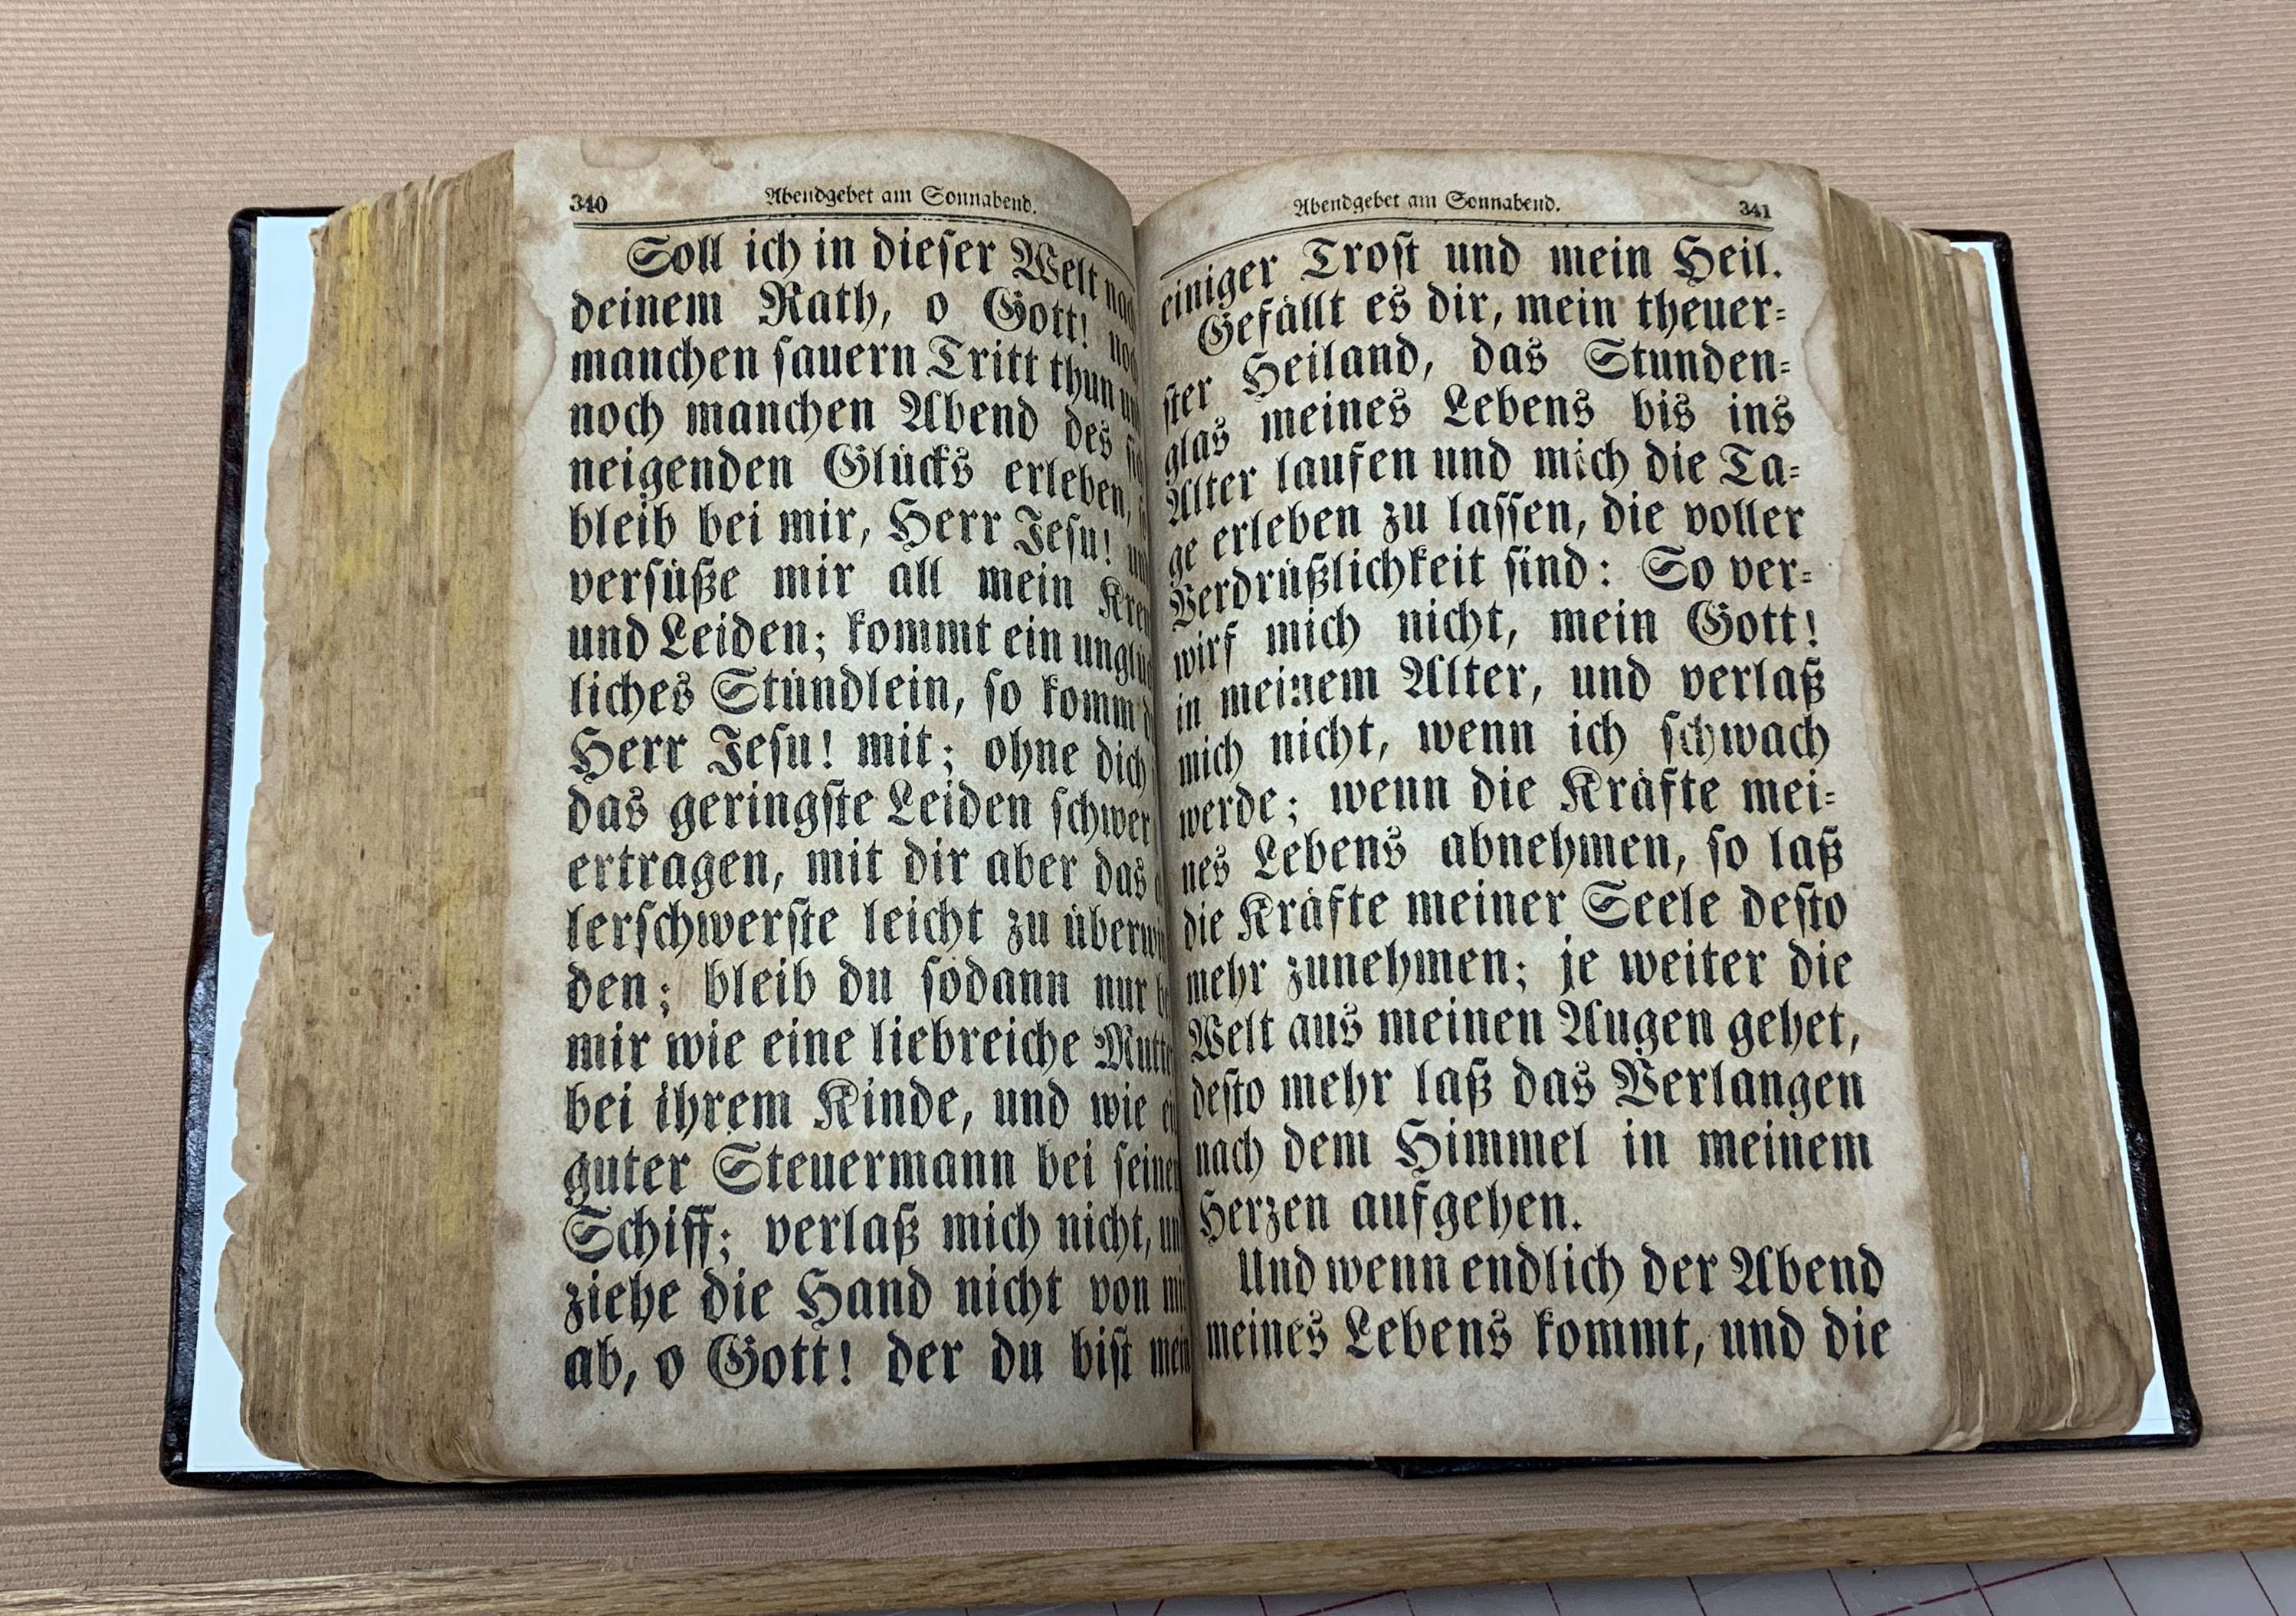 340 Abendgebet am Sonnabend.
Soll ich in dieser Welt
deinem Rath, o Gott!
manchen sauern Tritt thun
noch manchen Abend des
neigenden Glücks erleben,
bleib bei mir, Herr Jesu!
versüße mir all mein
und Leiden; kommt ein
liches Stündlein, so komm
Herr Jesu! mit; ohne dich
das geringste Leiden schwer
ertragen, mit dir aber das
lerschwerste leicht zu
den; bleib du sodann nur
mir wie eine liebreiche
bei ihrem Kinde, und wie
guter Steuermann bei
Schiff; verlaß mich nicht,
ziehe die Hand nicht von
ab, o Gott! der du bist mein
Abendgebet am Sonnabend. 341
einiger Trost und mein Heil.
Gefällt es dir, mein theuer-
ster Heiland, das Stunden-
glas meines Lebens bis ins
Alter laufen und mich die Ta-
ge erleben zu lassen, die voller
Verdrüßlichkeit sind: So ver-
wirf mich nicht, mein Gott!
in meinem Alter, und verlaß
mich nicht, wenn ich schwach
werde; wenn die Kräfte mei-
nes Lebens abnehmen, so laß
die Kräfte meiner Seele desto
mehr zunehmen; je weiter die
Welt aus meinen Augen gehet,
desto mehr laß das Verlangen
nach dem Himmel in meinem
Herzen aufgehen.
Und wenn endlich der Abend
meines Lebens kommt, und die